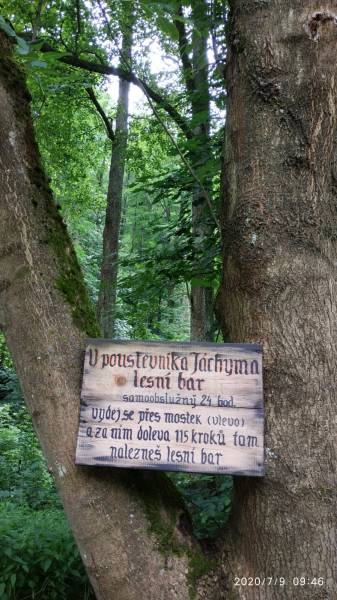 U poustevníka Jáchyma
lesní bar
samoobslužný 24 hod.
vydej se přes mostek (vlevo)
a za ním doleva 115 kroků tam
nalezneš lesní bar
2020/7/9 09:46